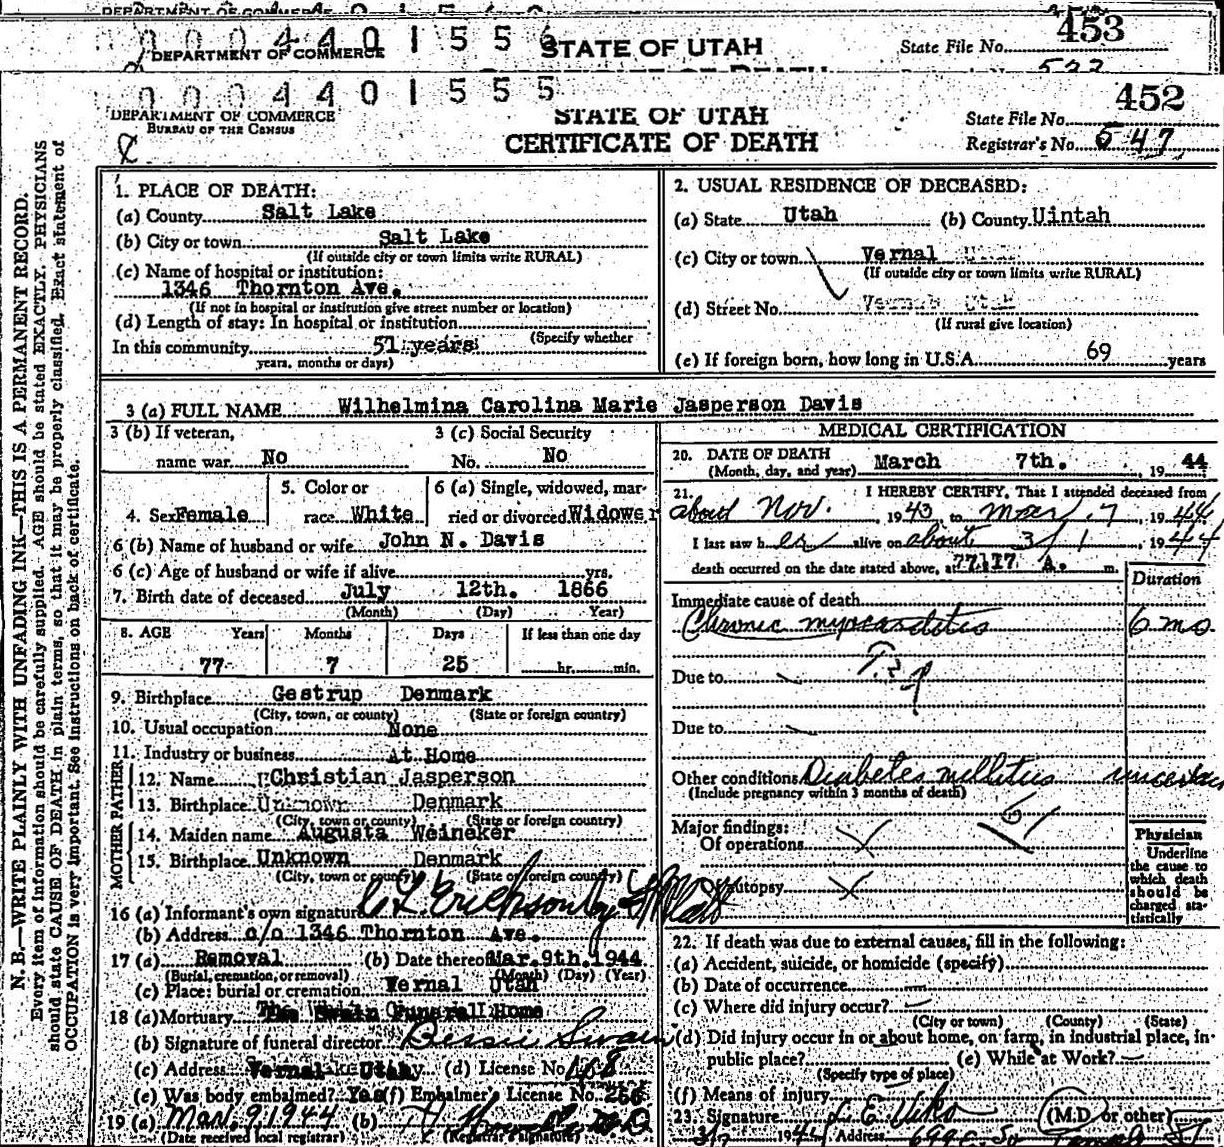 DEPARTMENT OF COMMERCE
0004401556
DEPARTMENT OF COMMERCE STATE OF UTAH State File No. 453
522
0004401555
DEPARTMENT OF COMMERCE STATE OF UTAH State File No. 452
BUREAU OF THE CENSUS CERTIFICATE OF DEATH Registrar's No. 547
N. B.—WRITE PLAINLY WITH UNFADING INK—THIS IS A PERMANENT RECORD.
Every item of information should be carefully supplied. AGE should be stated EXACTLY. PHYSICIANS
should state CAUSE OF DEATH in plain terms, so that it may be properly classified. Exact statement of
OCCUPATION is very important. See instructions on back of certificate.
1. PLACE OF DEATH:
(a) County Salt Lake
(b) City or town Salt Lake
(If outside city or town limits write RURAL)
(c) Name of hospital or institution:
1346 Thornton Ave.
(If not in hospital or institution give street number or location)
(d) Length of stay: In hospital or institution
(Specify whether
In this community 51 years
years, months or days)
2. USUAL RESIDENCE OF DECEASED:
(a) State Utah (b) County Uintah
(c) City or town Vernal
(If outside city or town limits write RURAL)
(d) Street No. Vernal Utah
(If rural give location)
(e) If foreign born, how long in U.S.A. 69 years
3 (a) FULL NAME Wilhelmina Carolina Marie Jasperson Davis
3 (b) If veteran, 3 (c) Social Security
name war No No. No
4. Sex Female 5. Color or race White 6 (a) Single, widowed, married or divorced Widower
6 (b) Name of husband or wife John N. Davis
6 (c) Age of husband or wife if alive yrs.
7. Birth date of deceased July 12th. 1866
(Month) (Day) Year)
8. AGE Years Months Days If less than one day
77 7 25 hr. min.
9. Birthplace Gestrup Denmark
(City, town, or county) (State or foreign country)
10. Usual occupation None
11. Industry or business At Home
FATHER
12. Name Christian Jasperson
13. Birthplace Unknown Denmark
(City, town or county) (State or foreign country)
MOTHER
14. Maiden name Augusta Weineker
15. Birthplace Unknown Denmark
(City, town or county) (State or foreign county)
16 (a) Informant's own signature C L Erickson by
(b) Address c/o 1346 Thornton Ave.
17 (a) Removal (b) Date thereof Mar. 9th. 1944
(Burial, cremation, or removal) (Month) (Day) (Year)
(c) Place: burial or cremation Vernal Utah
18 (a) Mortuary The Swain Funerall Home
(b) Signature of funeral director Bessie Swain
(c) Address Vernal Utah (d) License No. 168
(e) Was body embalmed? Yes (f) Embalmer's License No. 256
19 (a) Mar. 9, 1944 (b)
(Date received local registrar) (Registrar's signature)
MEDICAL CERTIFICATION
20. DATE OF DEATH
(Month, day, and year) March 7th. , 19 44
21. I HEREBY CERTIFY, That I attended deceased from
about Nov. , 19 43, to Mar. 7, 19 44
I last saw her alive on about 3/1, 19 44
death occurred on the date stated above, at A. m.
Duration
Immediate cause of death
Chronic myocarditis 6 mo
Due to
Due to
Other conditions Diabetes mellitus
(Include pregnancy within 3 months of death)
61
Major findings:
Of operations
Of autopsy
Physician
Underline
the cause to
which death
should be
charged sta-
tistically
22. If death was due to external causes, fill in the following:
(a) Accident, suicide, or homicide (specify)
(b) Date of occurrence
(c) Where did injury occur?
(City or town) (County) (State)
(d) Did injury occur in or about home, on farm, in industrial place, in
public place? (e) While at Work?
(Specify type of place)
(f) Means of injury
23. Signature L E Viko (M.D. or other)
3/7 1944 Address 699 E. So. Temple St